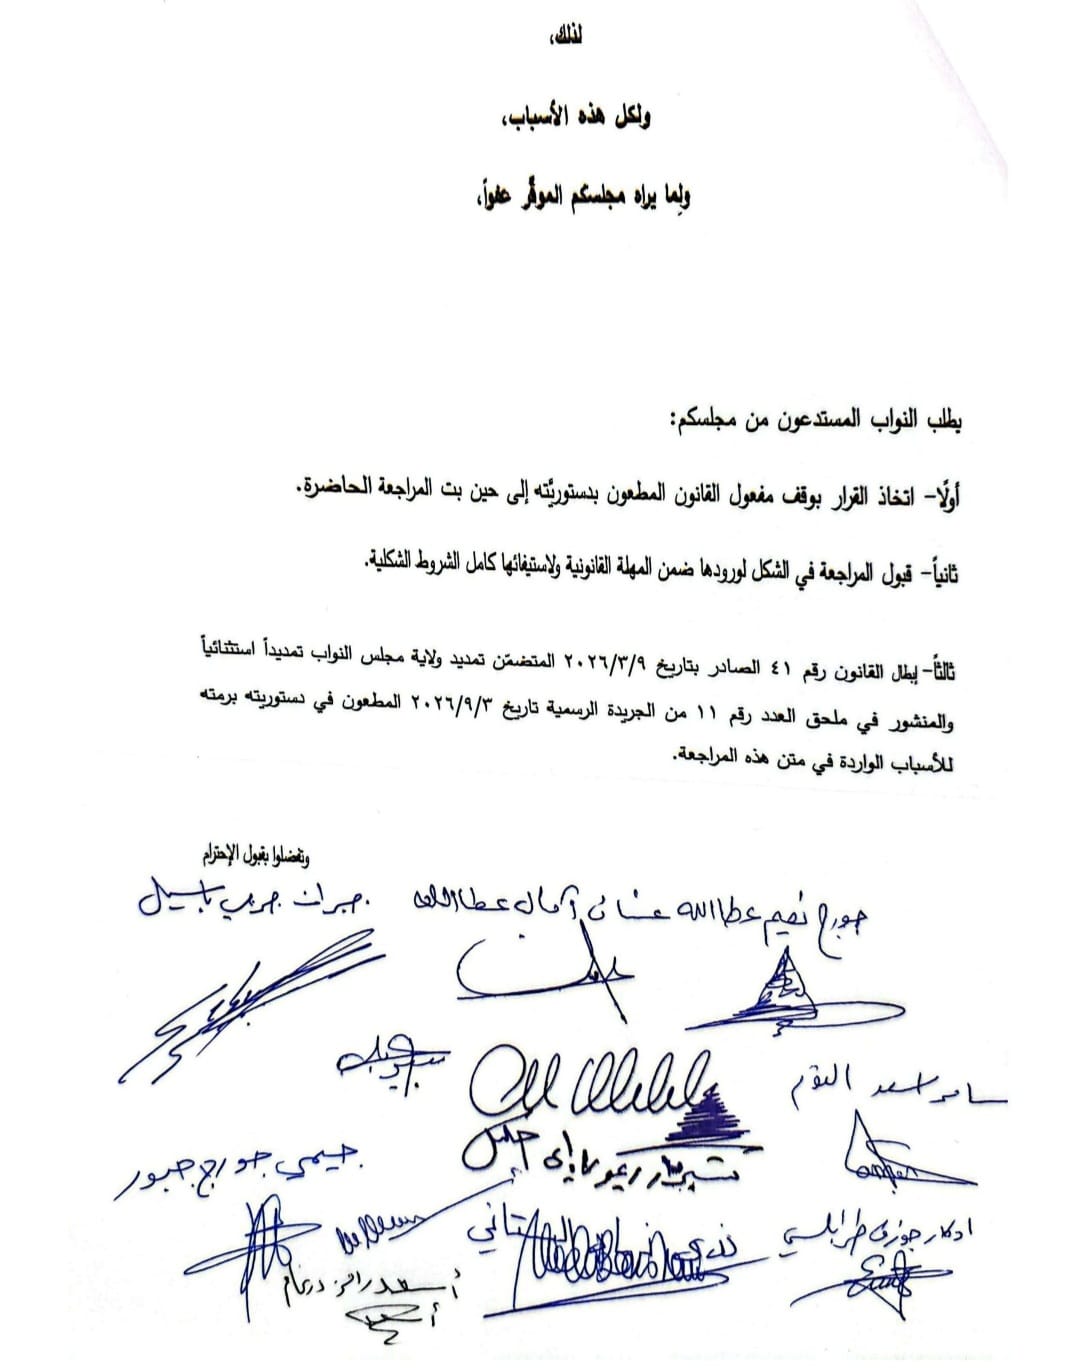 لذلك،
ولكل هذه الأسباب،
ولِما يراه مجلسكم الموقَّر عفواً،
يطلب النواب المستدعون من مجلسكم:
أولًا- اتخاذ القرار بوقف مفعول القانون المطعون بدستوريَّته إلى حين بت المراجعة الحاضرة.
ثانياً- قبول المراجعة في الشكل لورودها ضمن المهلة القانونية ولاستيفائها كامل الشروط الشكلية.
ثالثاً- إبطال القانون رقم ٤١ الصادر بتاريخ ٢٠٢٦/٣/٩ المتضمّن تمديد ولاية مجلس النواب تمديداً استثنائياً
والمنشور في ملحق العدد رقم ١١ من الجريدة الرسمية تاريخ ٢٠٢٦/٩/٣ المطعون في دستوريته برمته
للأسباب الواردة في متن هذه المراجعة.
وتفضلوا بقبول الإحترام
جورج نعيم عطاالله غسان آمال عطاالله جبران جرجي باسيل
سامر اسعد التوم
شربل
جيمي جورج جبور
ادكار جوزف طرابلسي
ندى البستاني
أسعد رامز درغام